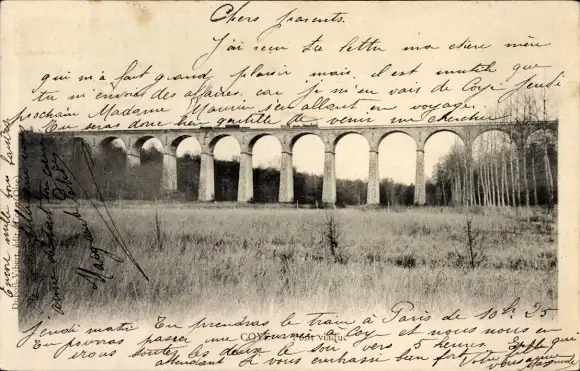 Chers parents.
J'ai reçu ta lettre ma chère mère
qui m'a fait grand plaisir mais il est inutile que
tu m'envoies des affaires car je m'en vais de Coye Jeudi
prochain Madame Maurin s'en allant en voyage.
Tu seras donc bien gentille de venir me chercher
Jeudi matin Tu prendras le train à Paris de 10h 25
Tu pourras passer une journée à Coye et nous nous en
irons toutes les deux le soir vers 5 heures. En
attendant je vous embrasse bien fort Votre fille qui
vous aime
COYE Viaduc
Encore mille bons baisers